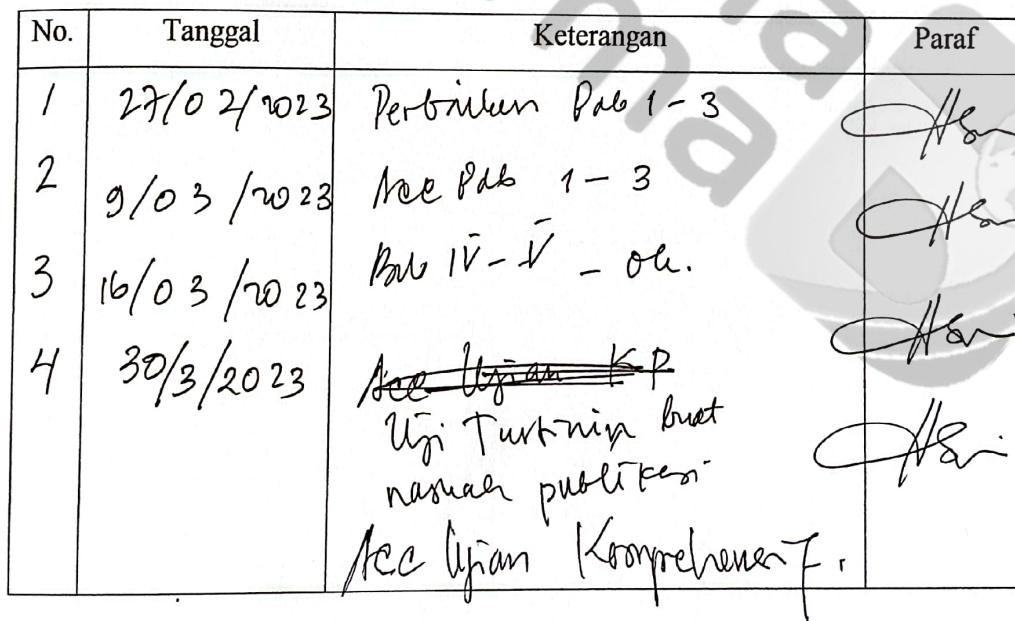 No. Tanggal Keterangan Paraf
1 27/02/2023 Perbaikan Bab 1 - 3
2 9/03/2023 Acc Bab 1 - 3
3 16/03/2023 Bab IV - V - ok.
4 30/3/2023 Acc Ujian KP
Uji Turnitin buat
naskah publikasi
Acc Ujian Komprehensif.